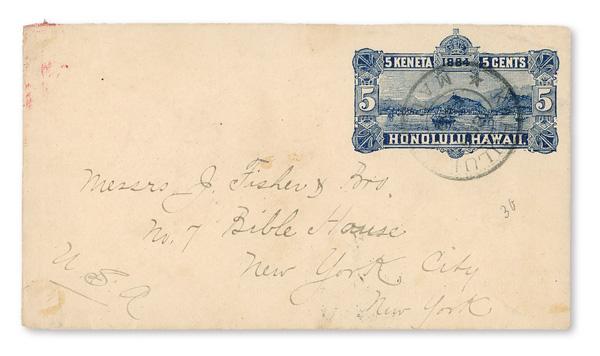 5 KENETA 1884 5 CENTS
5 5
HONOLULU, HAWAII.
Messrs J. Fisher & Bro
No. 7 Bible House
New York, City
New York
U.S.A
36